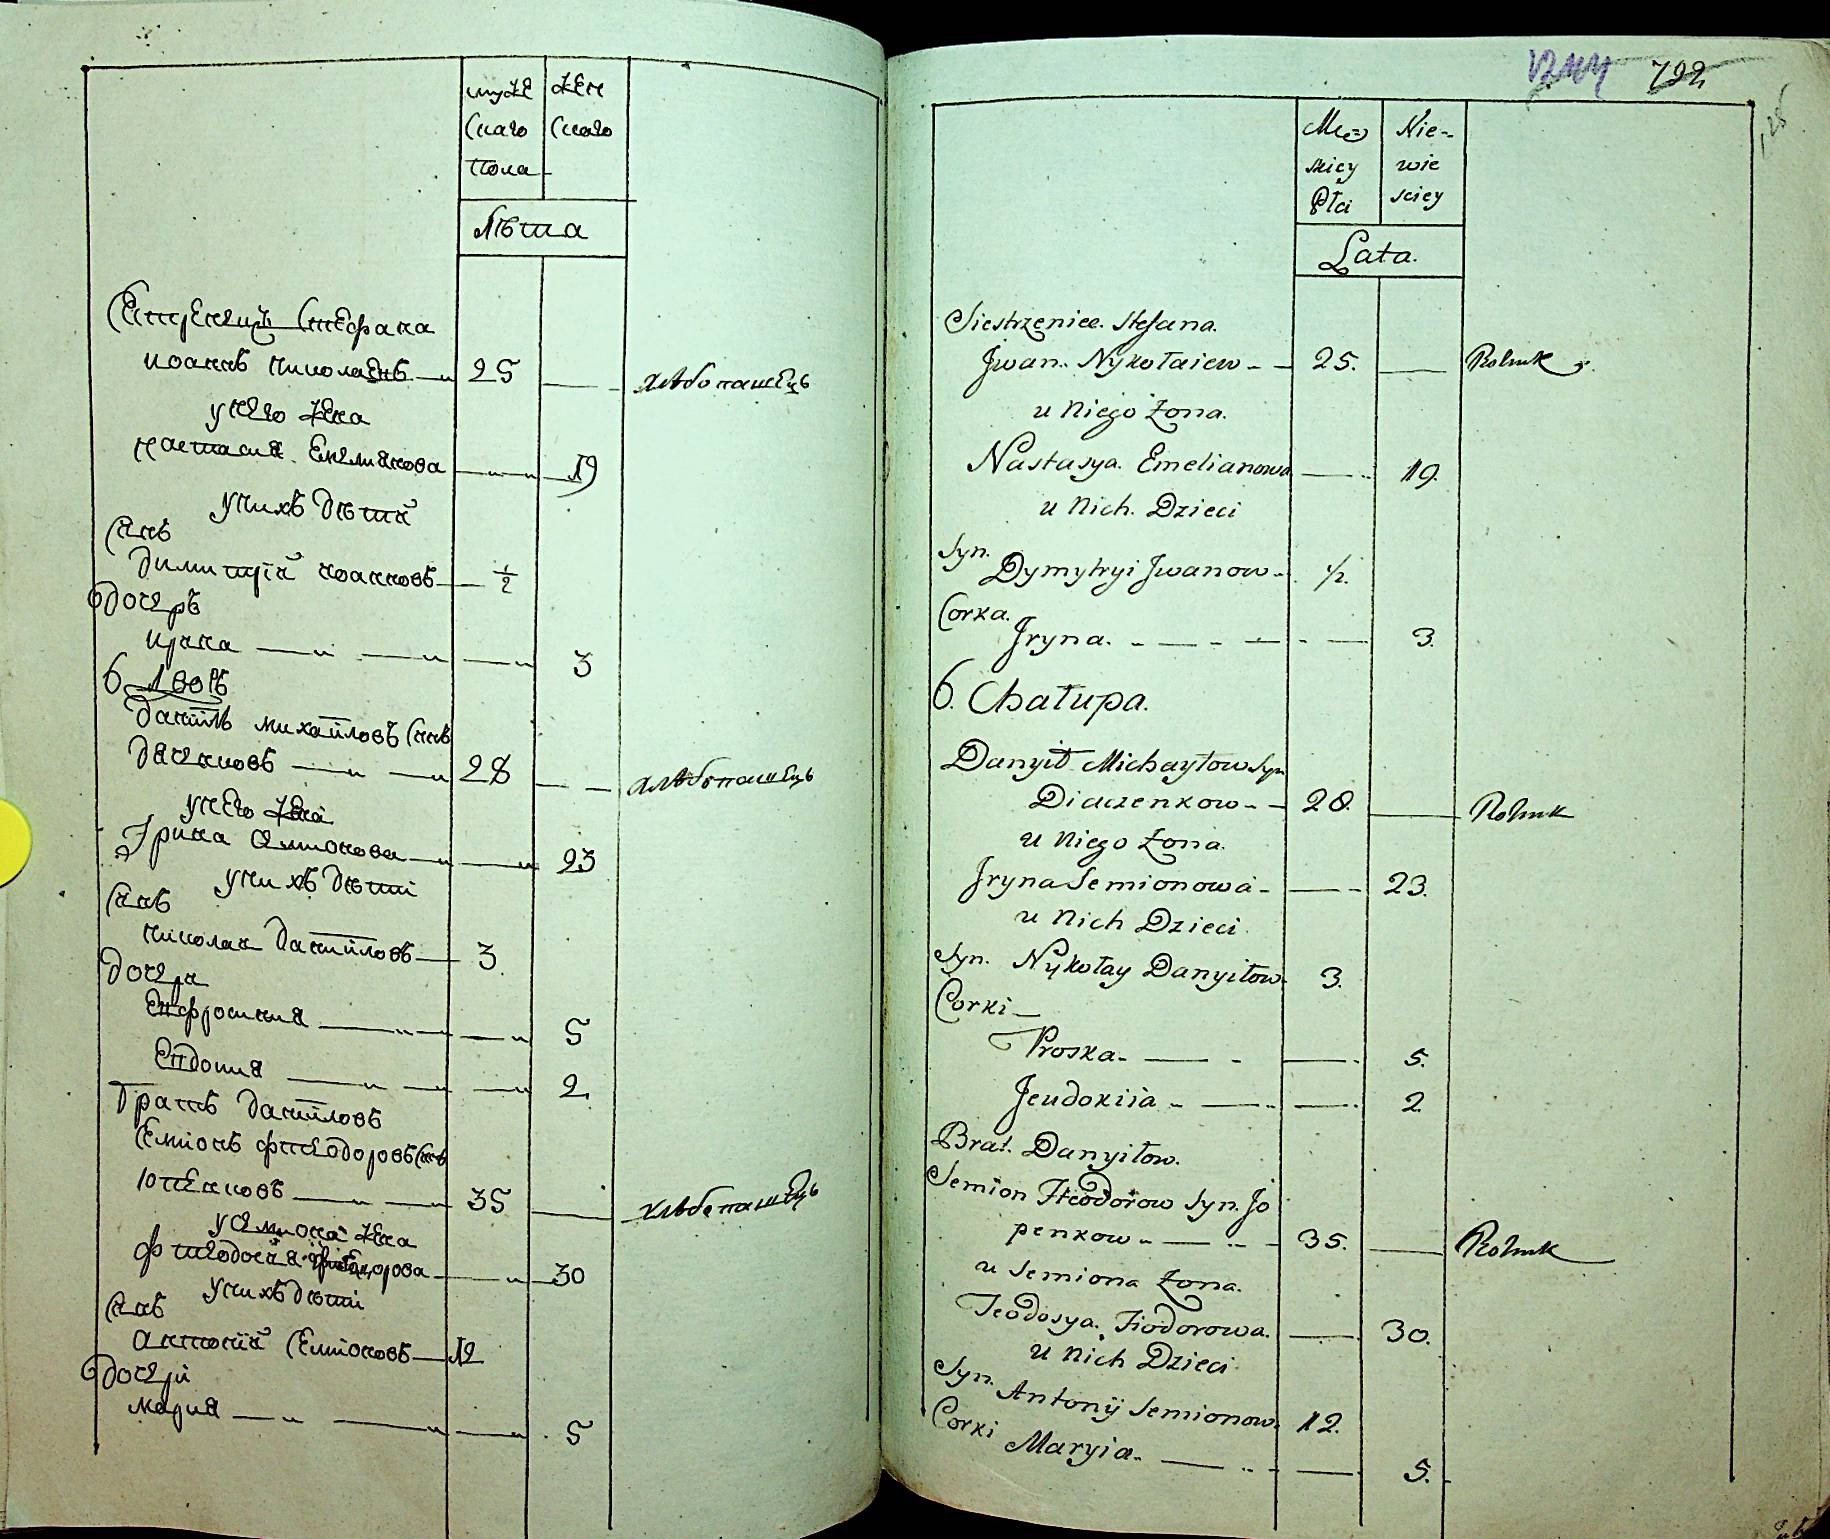 муже
скаго
пола
жен
скаго
лѣта
Сестренецъ Стефана
иоаннъ николаевъ 25 хлѣбопашецъ
у него жена
настасия Емелиянова 19
у нихъ дѣти
Сынъ
димитрій иоанновъ 1/2
дочерь
ирина 3
6 двор
даніилъ михайловъ Сынъ
дяченковъ 28 хлѣбопашецъ
у него жена
Ірина Семионова 23
у нихъ дѣти
Сынъ
николай даніиловъ 3
дочери
Евфросиния 5
Евдокия 2
братъ даніиловъ
Семіонъ фтеодоровъ Сынъ
юпенковъ 35 хлѣбопашецъ
у Семиона жена
фтеодосия 30
у нихъ дѣти
Сынъ
антоній Семіоновъ 12
дочери
мария 5
792
Mę=
skiey
Płci
Nie-
wie
sciey
Lata.
Siestrzeniec. Stefana.
Jwan. Nykołaiew 25. Rolnik
u Niego Żona.
Nastasya. Emelianowa 19.
u Nich. Dzieci
Syn.
Dymytryi Jwanow 1/2.
Corka.
Jryna. 3.
6. Chałupa.
Danyił Michayłow Syn
Diaczenkow 28. Rolnik
u Niego Żona.
Jryna Semionowa 23.
u Nich Dzieci
Syn. Nykołay Danyiłow. 3.
Corki
Proska 5.
Jeudokiia 2
Brat. Danyiłow.
Semion Fteodorow Syn. Jo
penkow 35. Rolnik
u Semiona Żona.
Teodosya. Fiodorowa. 30.
u Nich Dzieci
Syn. Antonij Semionow. 12.
Corki Maryia. 5.